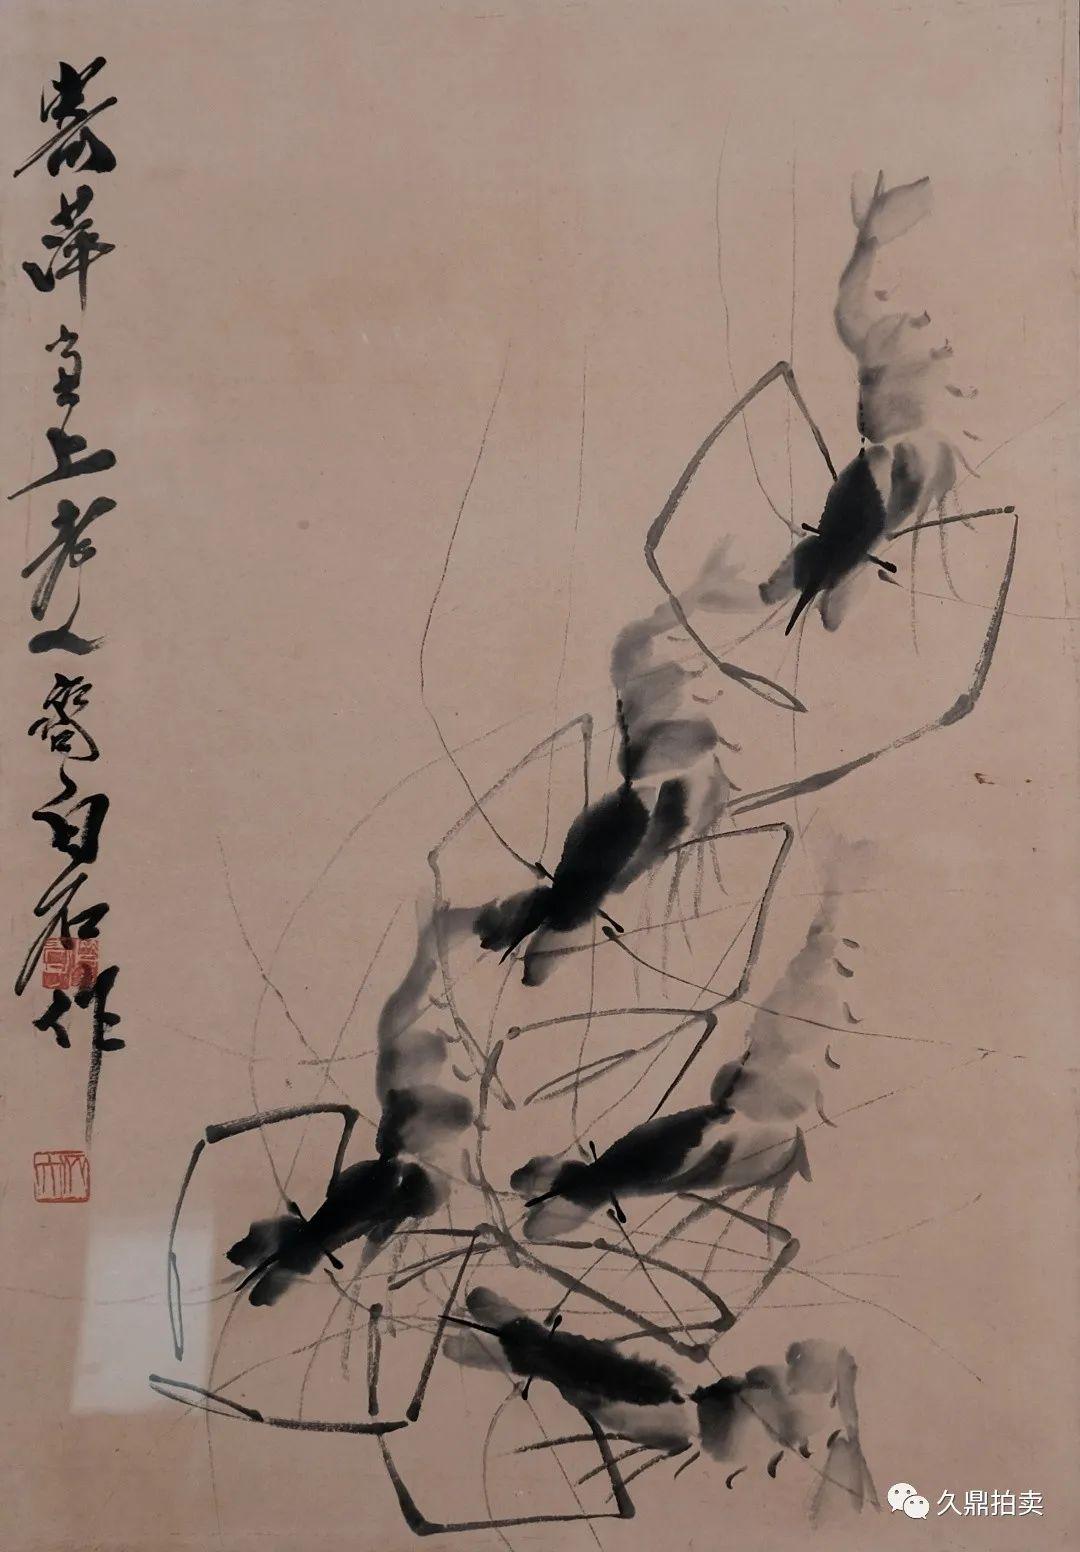 寄萍堂上老人齊白石作
久鼎拍卖